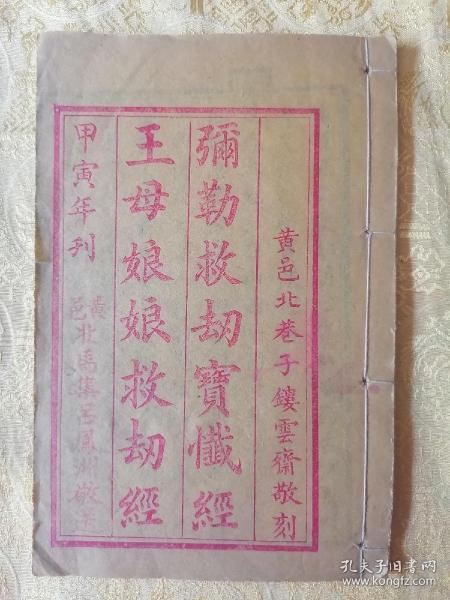 黃邑北巷子鏤雲齋敬刻
彌勒救劫寶懺經
王母娘娘救劫經
甲寅年刊
黃邑北馬集呂鳳洲敬
孔夫子旧书网
www.kongfz.com